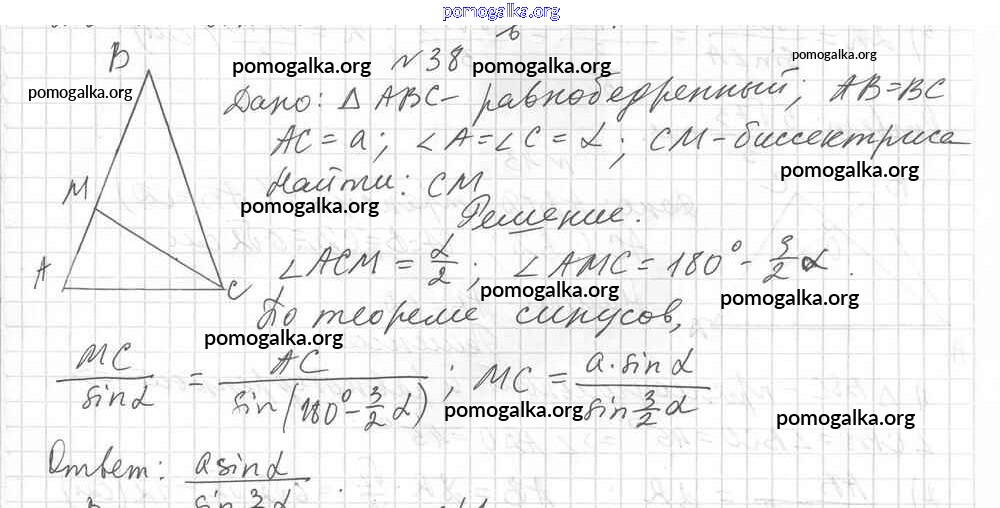 pomogalka.org
B
pomogalka.org
№38
pomogalka.org
pomogalka.org
pomogalka.org
Дано: Δ ABC - равнобедренный; AB=BC
AC = a; ∠A=∠C = α; CM - биссектриса
pomogalka.org
M
Найти: CM
pomogalka.org
Решение.
A
C
∠ACM = α/2; ∠AMC = 180° - 3/2 α.
pomogalka.org
pomogalka.org
По теореме синусов,
pomogalka.org
MC/sin α = AC/sin(180° - 3/2 α); MC = a·sin α/sin 3/2 α
pomogalka.org
pomogalka.org
Ответ: a sin α/sin 3/2 α